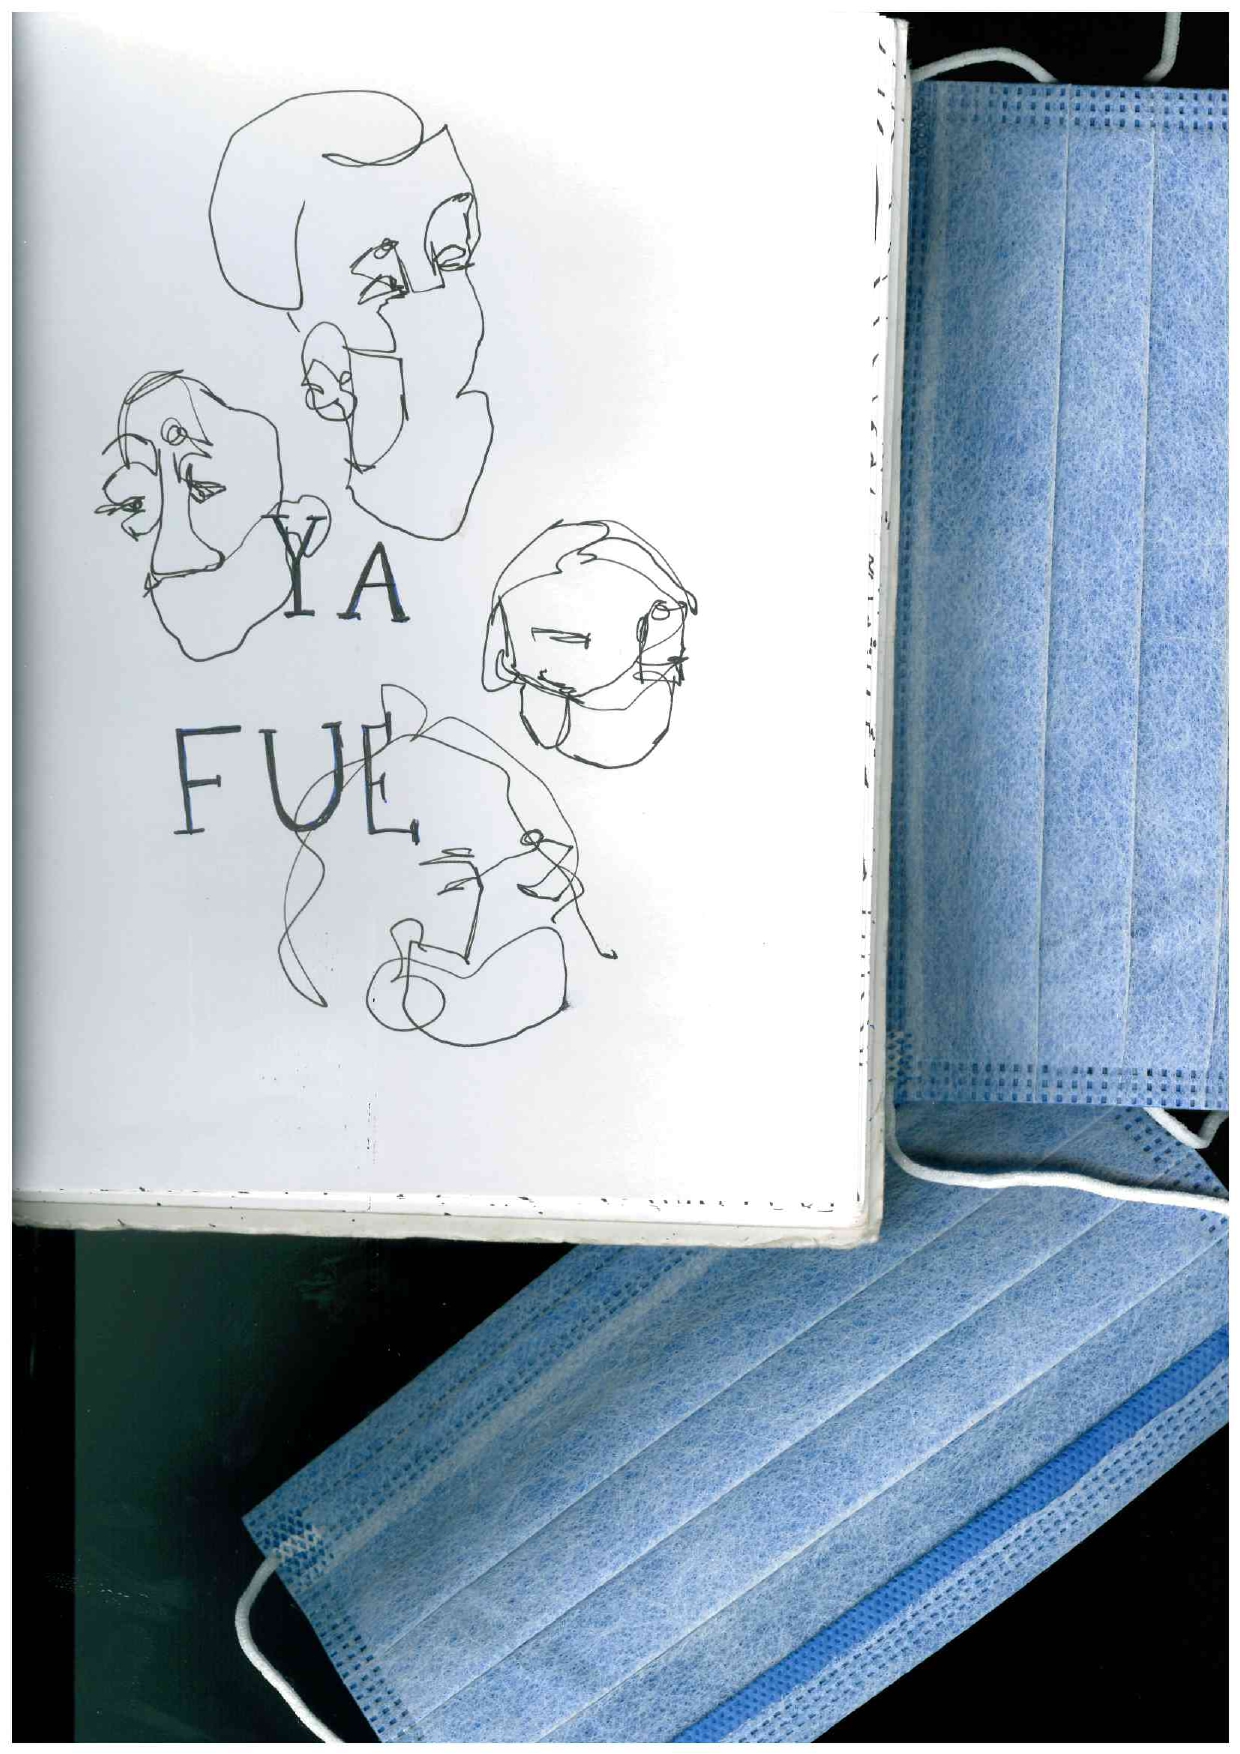 YA
FUE